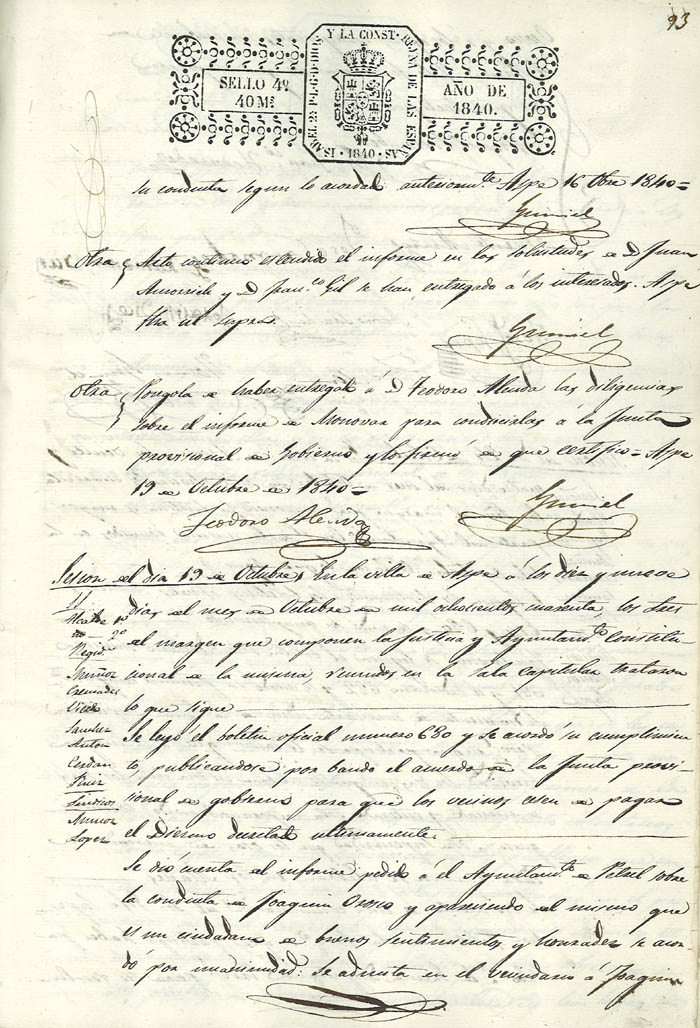 93
ISABEL 2ª P.L.G.D.DIOS Y LA CONST. REYNA DE LAS ESPAÑAS
SELLO 4º
40 Ms
AÑO DE
1840.
1840
su conducta segun lo acordado anteriormte. Aspe 16 Obre 1840=
Grimiel
Otra Acto continuo estendido el informe en las solicitudes de D. Juan
y D. Franco. Gil se han entregado á los interesados. Aspe
fha ut supra.
Grimiel
Otra Pongola de haber entregado á D. Teodoro Alenda las diligencias
sobre el informe de Monovar para conducirlas á la Junta
provisional de Gobierno y lo firmó de que certifico= Aspe
19 de Octubre de 1840=
Teodoro Alenda
Grimiel
Sesion del dia 19 de Octubre En la villa de Aspe á los diez y nueve
dias del mes de Octubre de mil ochocientos cuarenta los Sres
del margen que componen la Justicia y Ayuntamto. constitu
cional de la misma, reunidos en la Sala capitular trataron
lo que sigue
SS
Alcalde 1º
2º
Regid.
Muñoz
Cremades
Vicedo
Sanchez
Anton
Cerdan
Sindicos
Muñoz
Lopez
Se leyó el boletin oficial numero 680 y se acordó su cumplimien
to, publicandose por bando el acuerdo de la Junta provi
sional de gobierno para que los vecinos cesen de pagar
el Diezmo decretado ultimamente.
Se dió cuenta del informe pedido á el Ayuntamto. de Petrel sobre
la conducta de Joaquin Orosco y apareciendo del mismo que
es un ciudadano de buenos sentimientos y honradez se acor
dó por unanimidad: Se admita en el vecindario á Joaquin